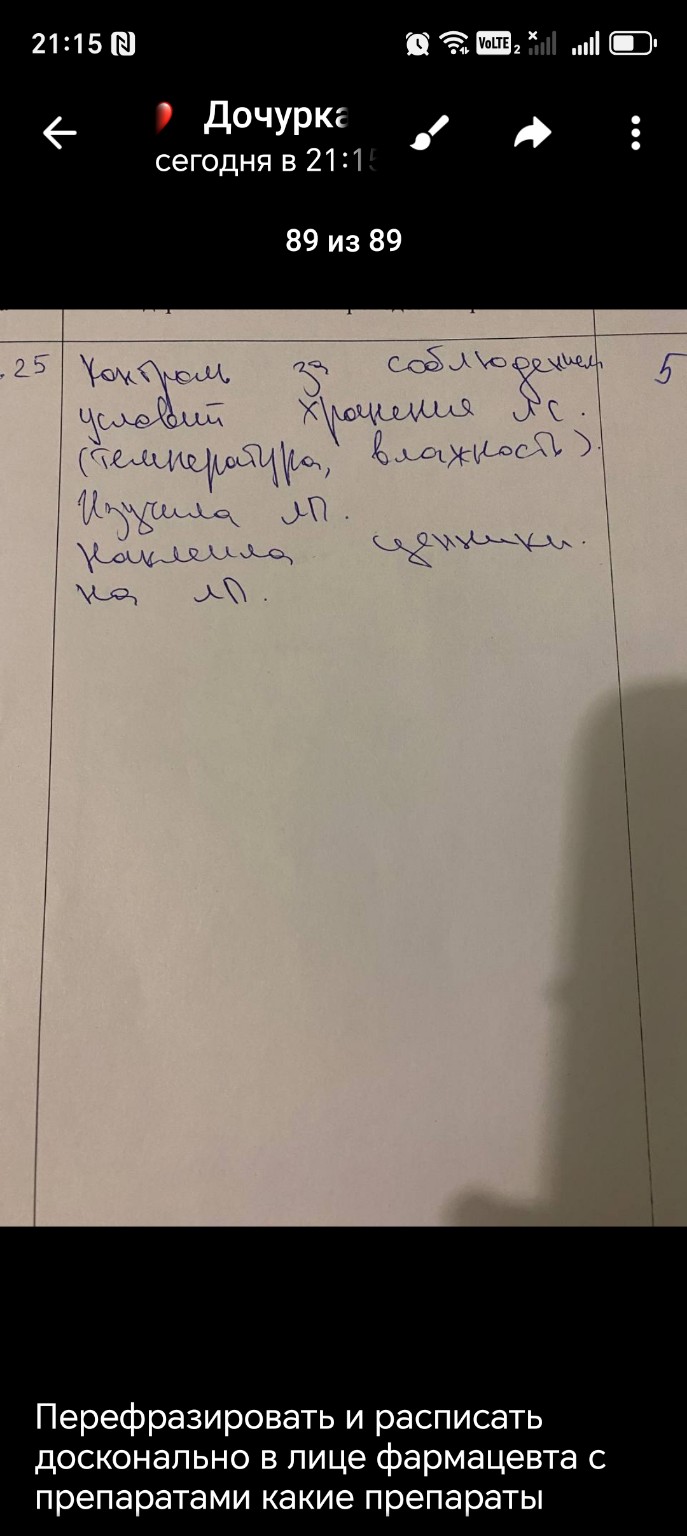 21:15
VoLTE 2
Дочурка
сегодня в 21:15
89 из 89
.25 Контроль за соблюдением 5
условий хранения ЛС.
(температура, влажность).
Изучила ЛП.
Наклеила ценники.
на ЛП.
Перефразировать и расписать
досконально в лице фармацевта с
препаратами какие препараты